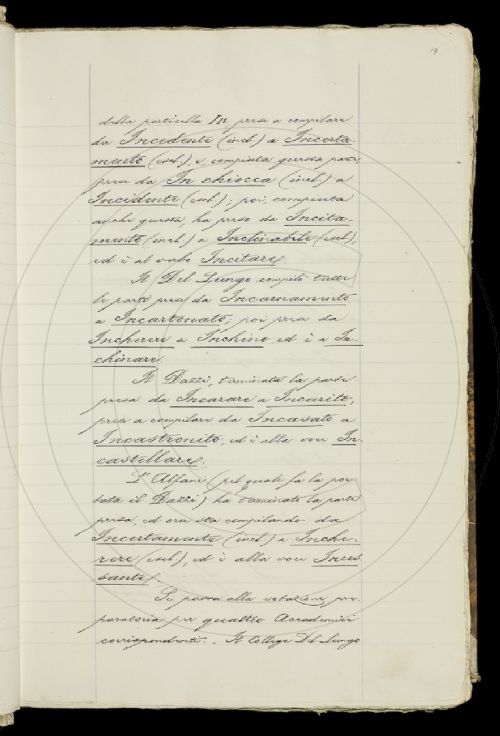 19
della particella In presa a compilare
da Incedente (incl.) a Incerta-
mento (escl.) e, compiuta questa parte,
presa da In chiocca (incl.) a
Incidente (escl.); poi, compiuta
anche questa, ha preso da Incita-
mento (incl.) a Inclinabile (escl.),
ed è al verbo Incitare.
Il Del Lungo compilò tutta
la parte presa da Incarnamento
a Incartonato, poi presa da
Incherere a Inchino ed è a In-
chinare.
Il Dazzi, terminata la parte
presa da Incarare a Incarito,
presa a compilare da Incasato a
Incastronito, ed è alla voce In-
castellare.
L'Alfani (pel quale fa la por-
tata il Dazzi) ha terminato la parte
presa, ed ora sta compilando da
Incertamente (incl.) a Inche-
rere (escl.), ed è alla voce Inces-
sante.
Si passa alla votazione pre-
paratoria per quattro Accademici
corrispondenti. - Il Collega Del Lungo